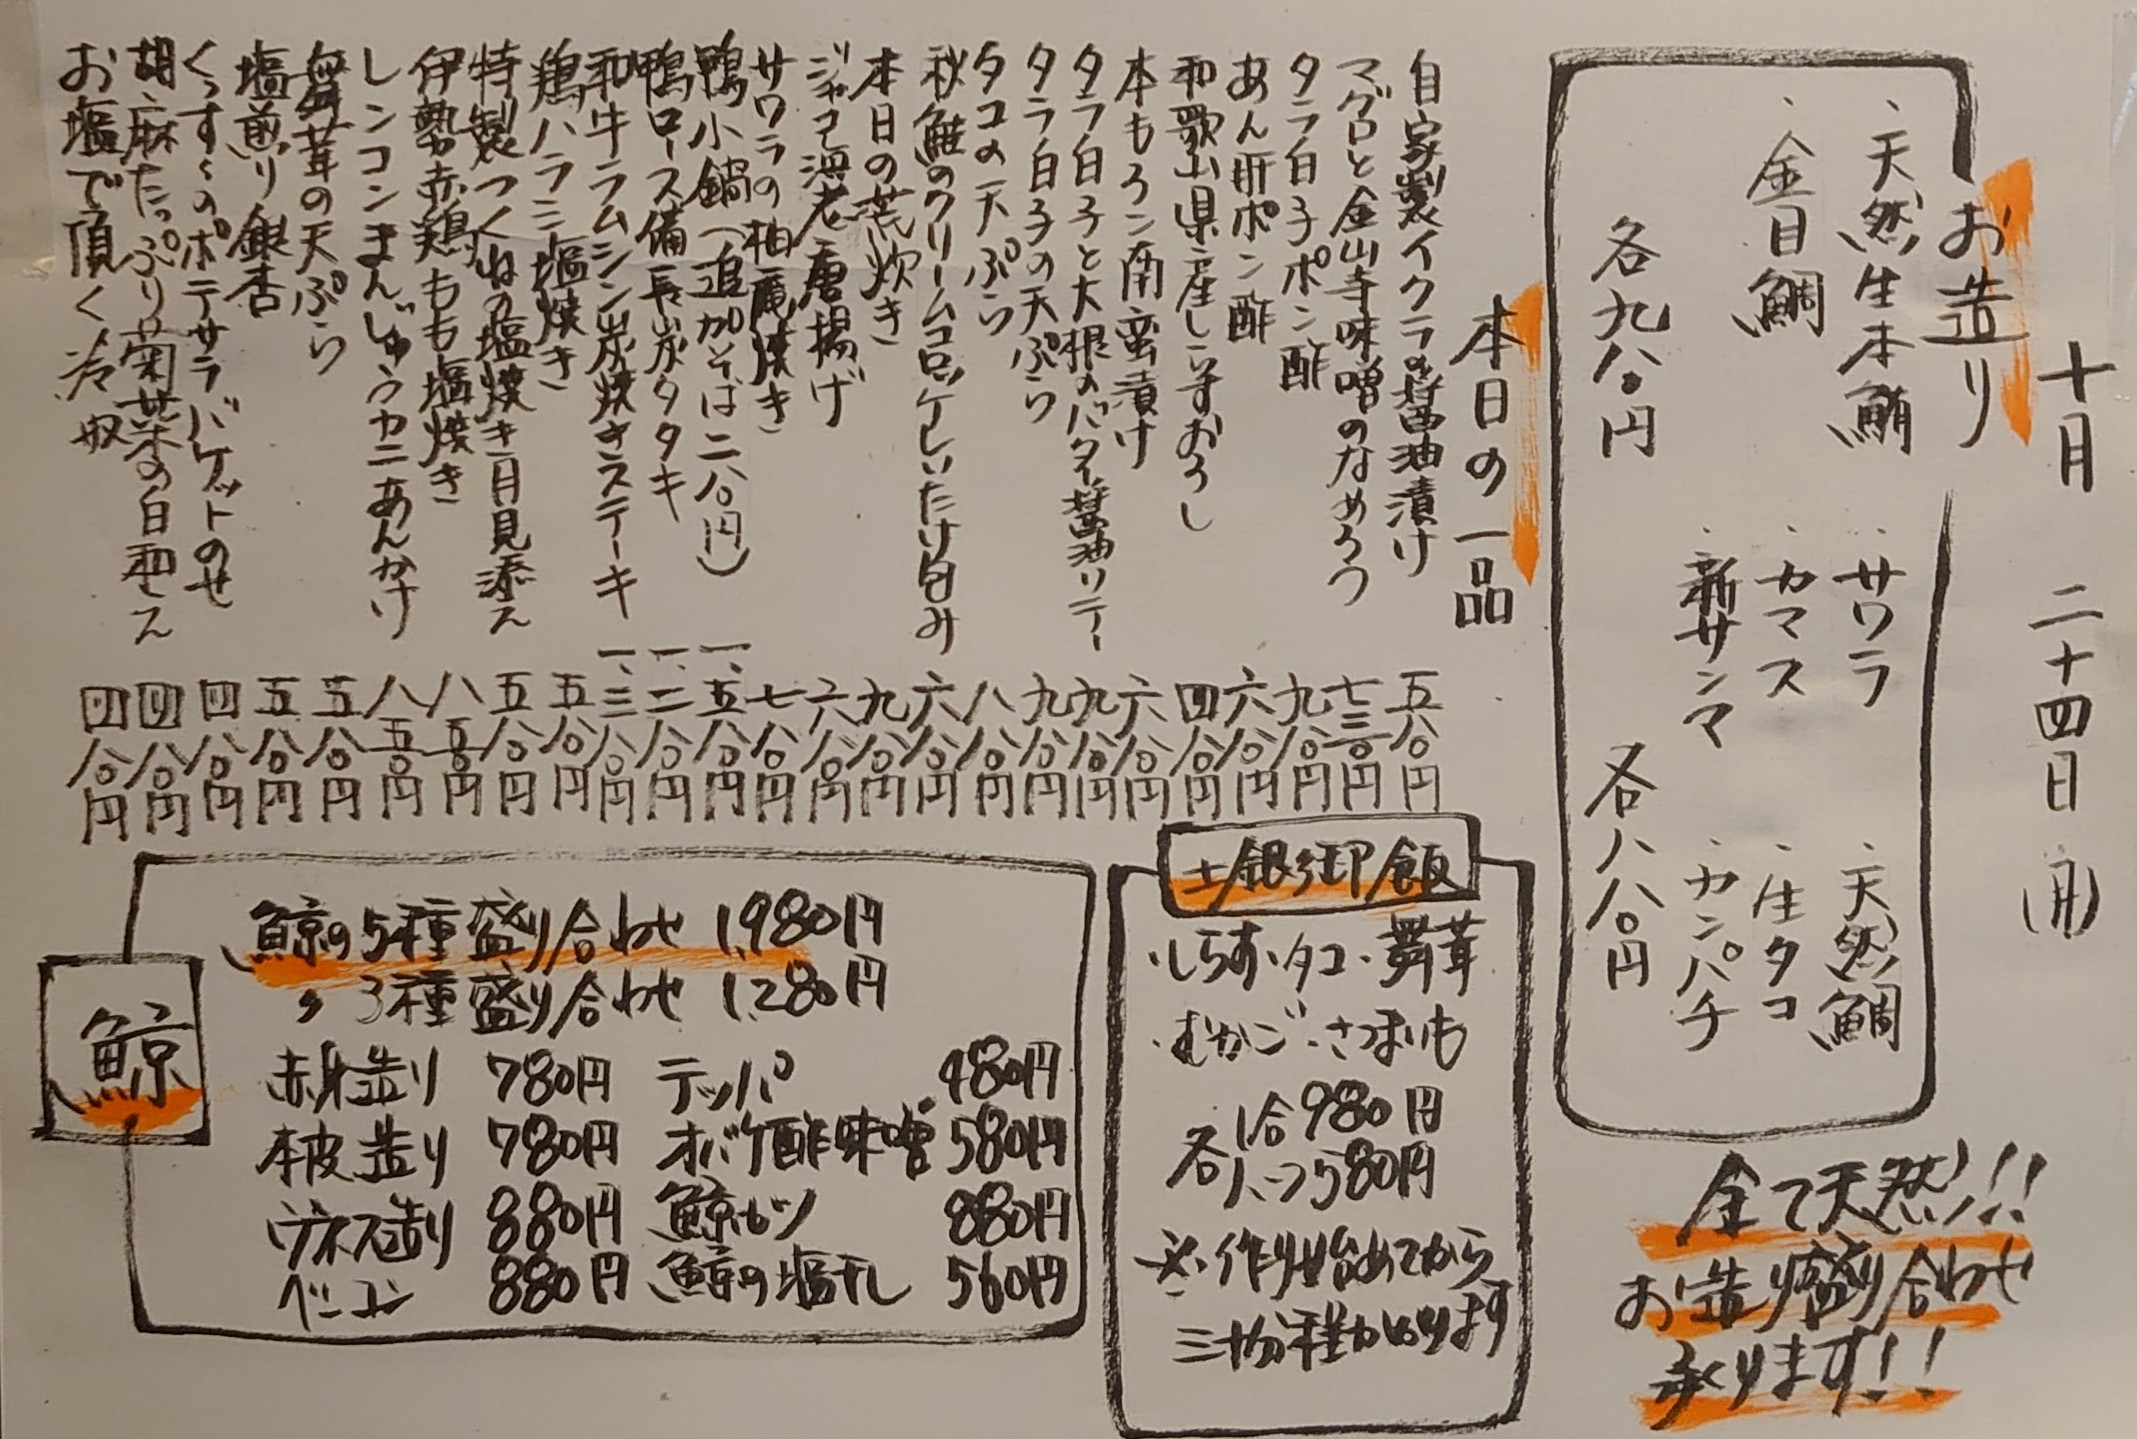 十月 二十四日(月)
お造り
・天然生本鮪 ・サワラ ・天然鯛
・金目鯛 ・カマス ・生タコ
・新サンマ ・カンパチ
各九八〇円 各八八〇円
全て天然!!
お造り盛り合わせ
承ります!!
本日の一品
自家製イクラの醤油漬け 五八〇円
マグロと金山寺味噌のなめろう 七三〇円
タラ白子ポン酢 九八〇円
あん肝ポン酢 六八〇円
和歌山県産しらすおろし 四八〇円
本もろこ南蛮漬け 六八〇円
タラ白子と大根のバター醤油ソテー 九八〇円
タラ白子の天ぷら 九八〇円
タコの天ぷら 八八〇円
秋鮭のクリームコロッケしいたけ包み 六八〇円
本日の荒炊き 九八〇円
ジャコ海老唐揚げ 六八〇円
サワラの柚庵焼き 七八〇円
鴨小鍋(追加そば二八〇円) 一、五八〇円
鴨ロース備長炭タタキ 一、二八〇円
和牛ラムシン炭焼きステーキ 一、三八〇円
鶏ハラミ塩焼き 五八〇円
特製つくねの塩焼き月見添え 五八〇円
伊勢赤鶏もも塩焼き 八五〇円
レンコンまんじゅうカニあんかけ 八五〇円
舞茸の天ぷら 五八〇円
塩煎り銀杏 五八〇円
くっすぐのポテサラバケットのせ 四八〇円
胡麻たっぷり菊菜の白和え 四八〇円
お塩で頂く冷奴 四八〇円
土鍋御飯
・しらす・タコ・舞茸
・むかご・さつまいも
各 1合980円
ハーフ580円
※作り始めてから
三十分程かかります
鯨
鯨の5種盛り合わせ 1,980円
〃 3種盛り合わせ 1,280円
赤身造り 780円 テッパ 480円
本皮造り 780円 オバケ酢味噌 580円
ウネス造り 880円 鯨カツ 880円
ベーコン 880円 鯨の塩干し 560円